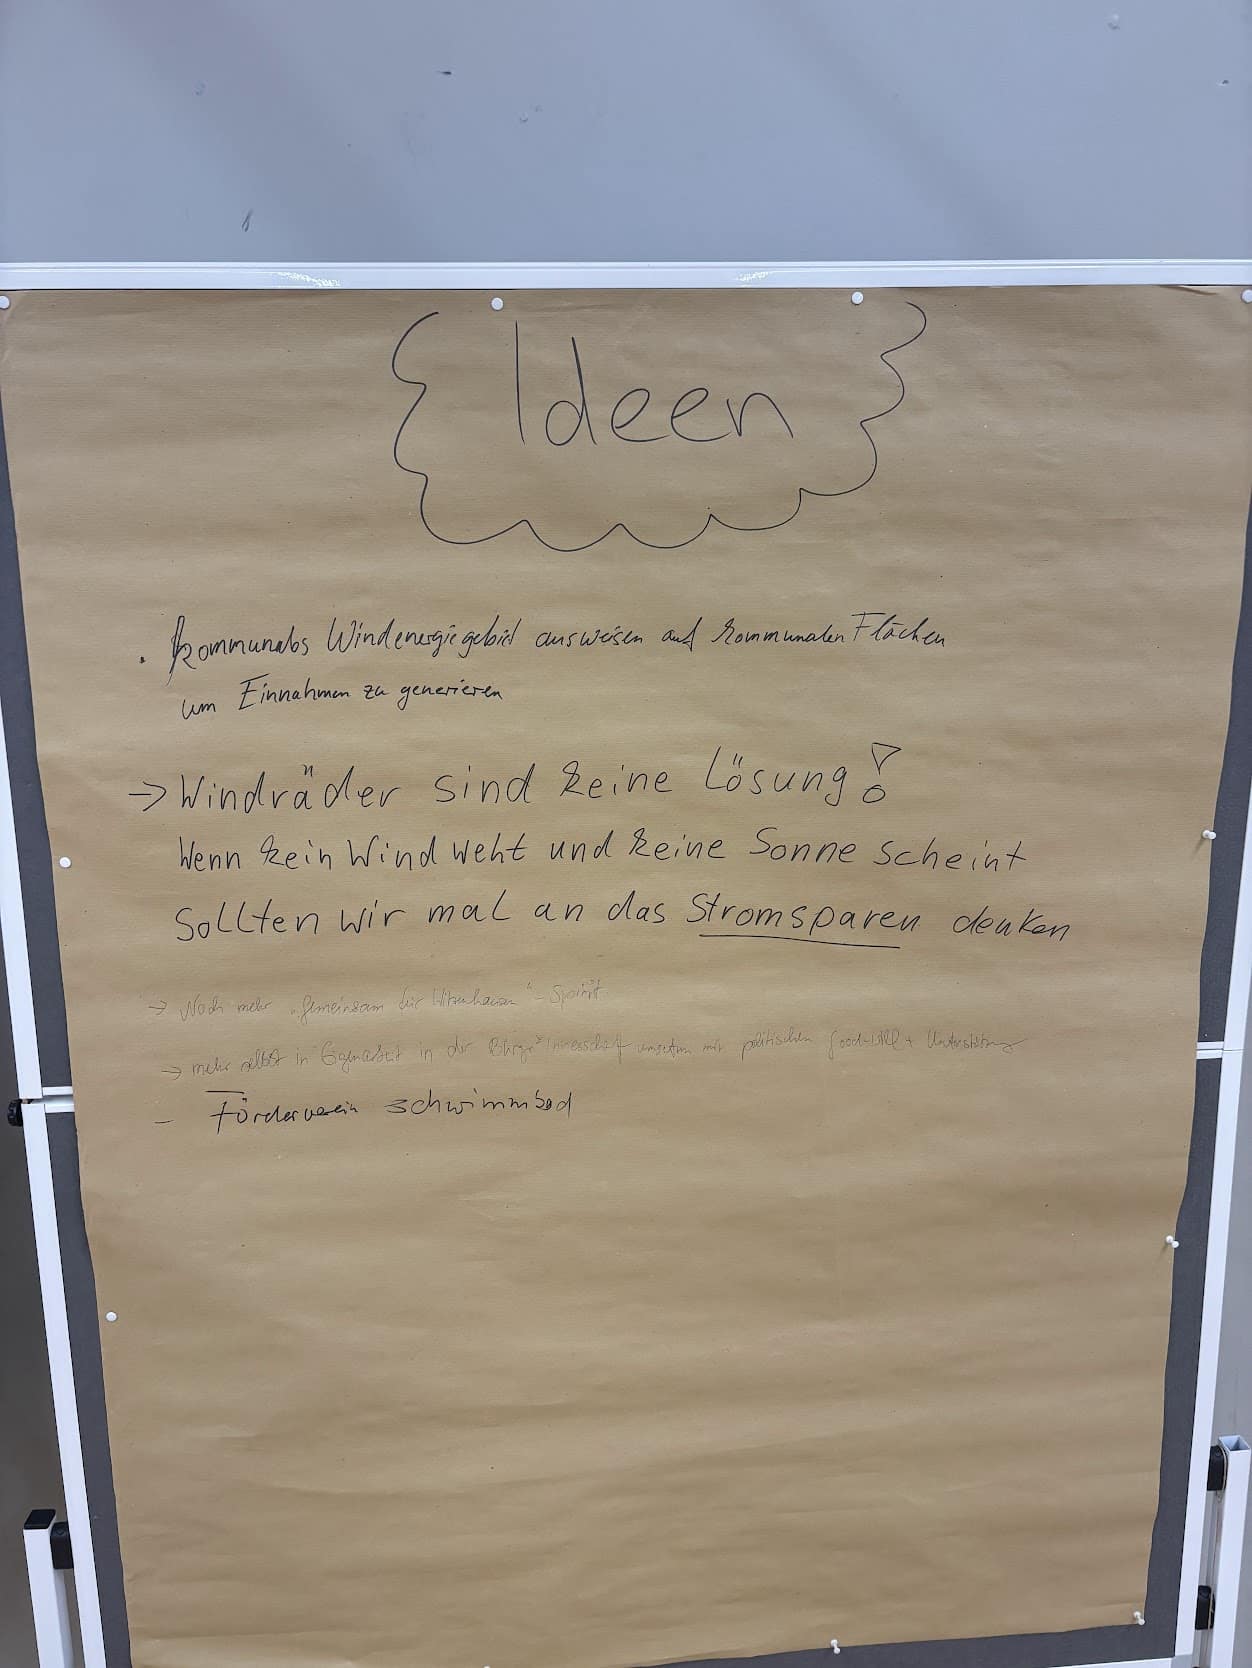 Ideen
. kommunales Windenergiegebiet ausweisen auf kommunalen Flächen
um Einnahmen zu generieren
→ Windräder sind keine Lösung!
Wenn kein Wind weht und keine Sonne scheint
Sollten wir mal an das Stromsparen denken
→ Noch mehr "Gemeinsam für Witzenhausen" - Spirit
→ mehr selbst in Eigenarbeit in der umsetzen mit politischen Good-Will + Unterstützung
- Förderverein Schwimmbad